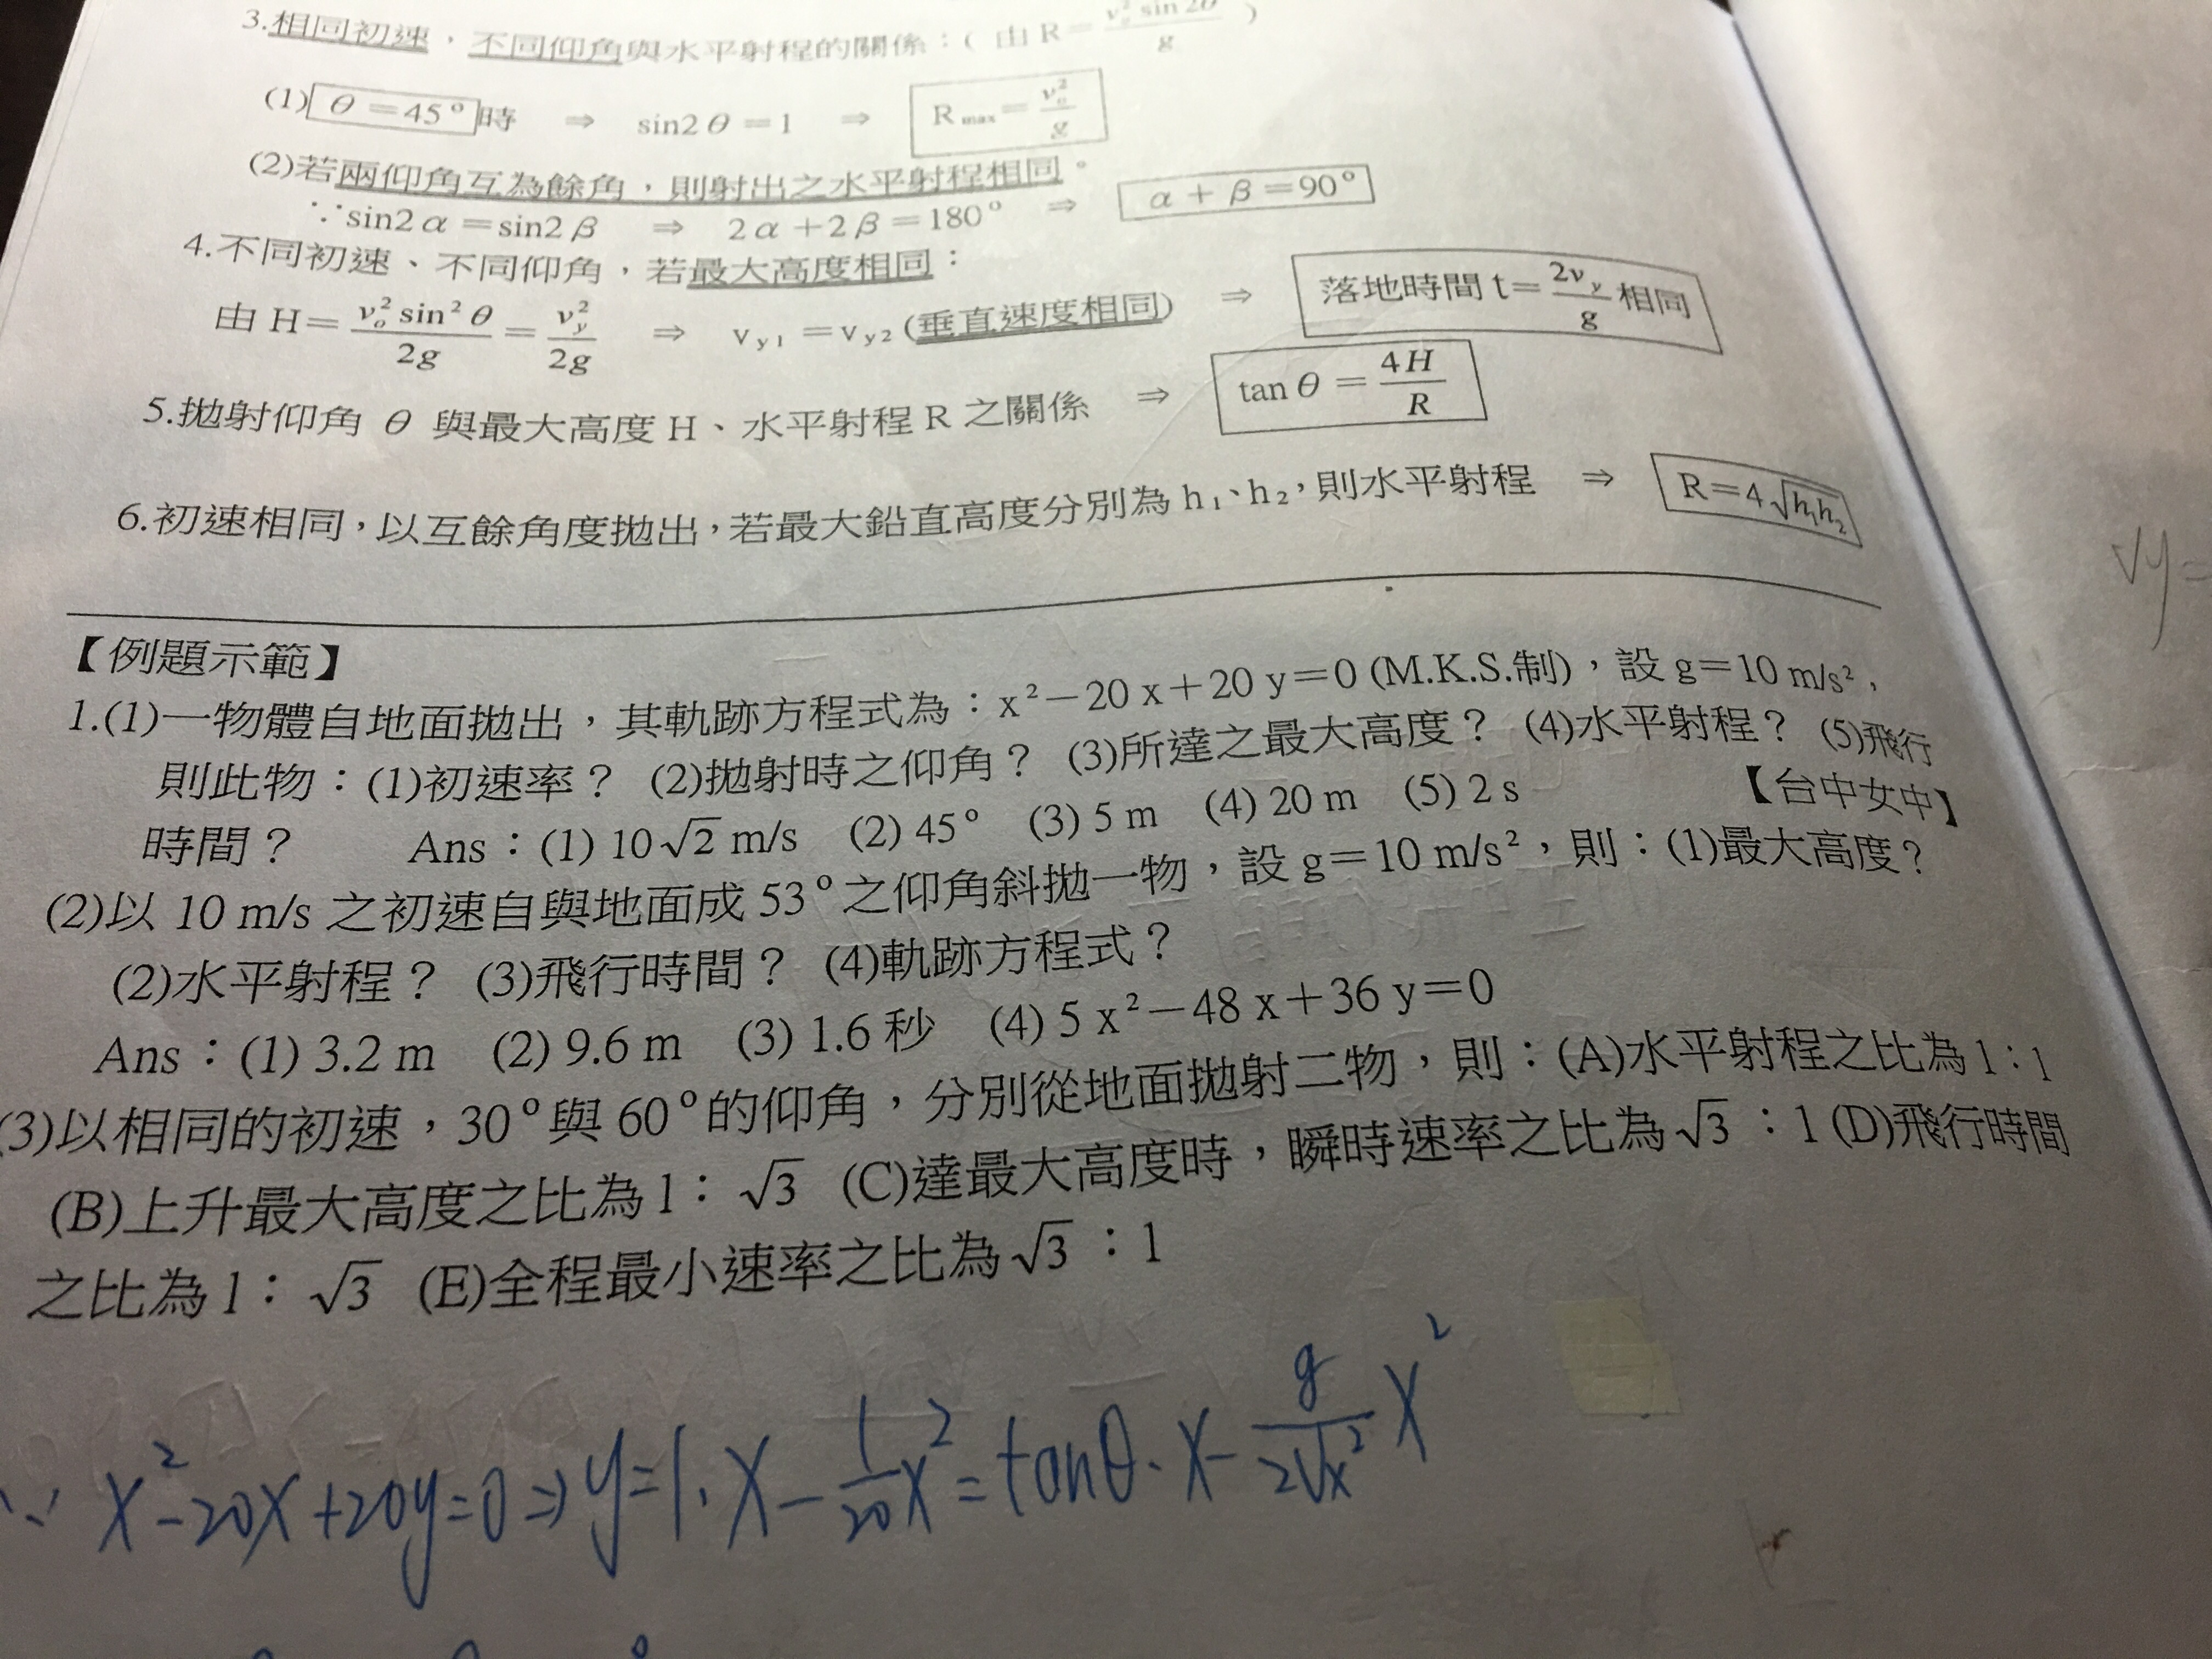 3.相同初速，不同仰角與水平射程的關係：( 由 R＝v₀² sin 2θ/g )
(1) θ＝45° 時 ⇒ sin2θ＝1 ⇒ R max＝v₀²/g
(2)若兩仰角互為餘角，則射出之水平射程相同。
∵sin2α＝sin2β ⇒ 2α＋2β＝180° ⇒ α＋β＝90°
4.不同初速、不同仰角，若最大高度相同：
由 H＝v₀² sin² θ/2g＝v_y²/2g ⇒ v_y1＝v_y2 (垂直速度相同) ⇒ 落地時間 t＝2v_y/g 相同
5.拋射仰角 θ 與最大高度 H、水平射程 R 之關係 ⇒ tan θ＝4H/R
6.初速相同，以互餘角度拋出，若最大鉛直高度分別為 h₁、h₂，則水平射程 ⇒ R＝4√h₁h₂
Vy=
【例題示範】
1.(1)一物體自地面拋出，其軌跡方程式為：x²－20 x＋20 y＝0 (M.K.S.制)，設 g＝10 m/s²，
則此物：(1)初速率？ (2)拋射時之仰角？ (3)所達之最大高度？ (4)水平射程？ (5)飛行
時間？ Ans：(1) 10√2 m/s (2) 45° (3) 5 m (4) 20 m (5) 2 s 【台中女中】
(2)以 10 m/s 之初速自與地面成 53°之仰角斜拋一物，設 g＝10 m/s²，則：(1)最大高度？
(2)水平射程？ (3)飛行時間？ (4)軌跡方程式？
Ans：(1) 3.2 m (2) 9.6 m (3) 1.6 秒 (4) 5 x²－48 x＋36 y＝0
(3)以相同的初速，30°與 60°的仰角，分別從地面拋射二物，則：(A)水平射程之比為 1：1
(B)上升最大高度之比為 1：√3 (C)達最大高度時，瞬時速率之比為 √3：1 (D)飛行時間
之比為 1：√3 (E)全程最小速率之比為 √3：1
∵ x²-20x+20y=0 ⇒ y=1·x-1/20 x²=tanθ·x-g/2Vx² x²